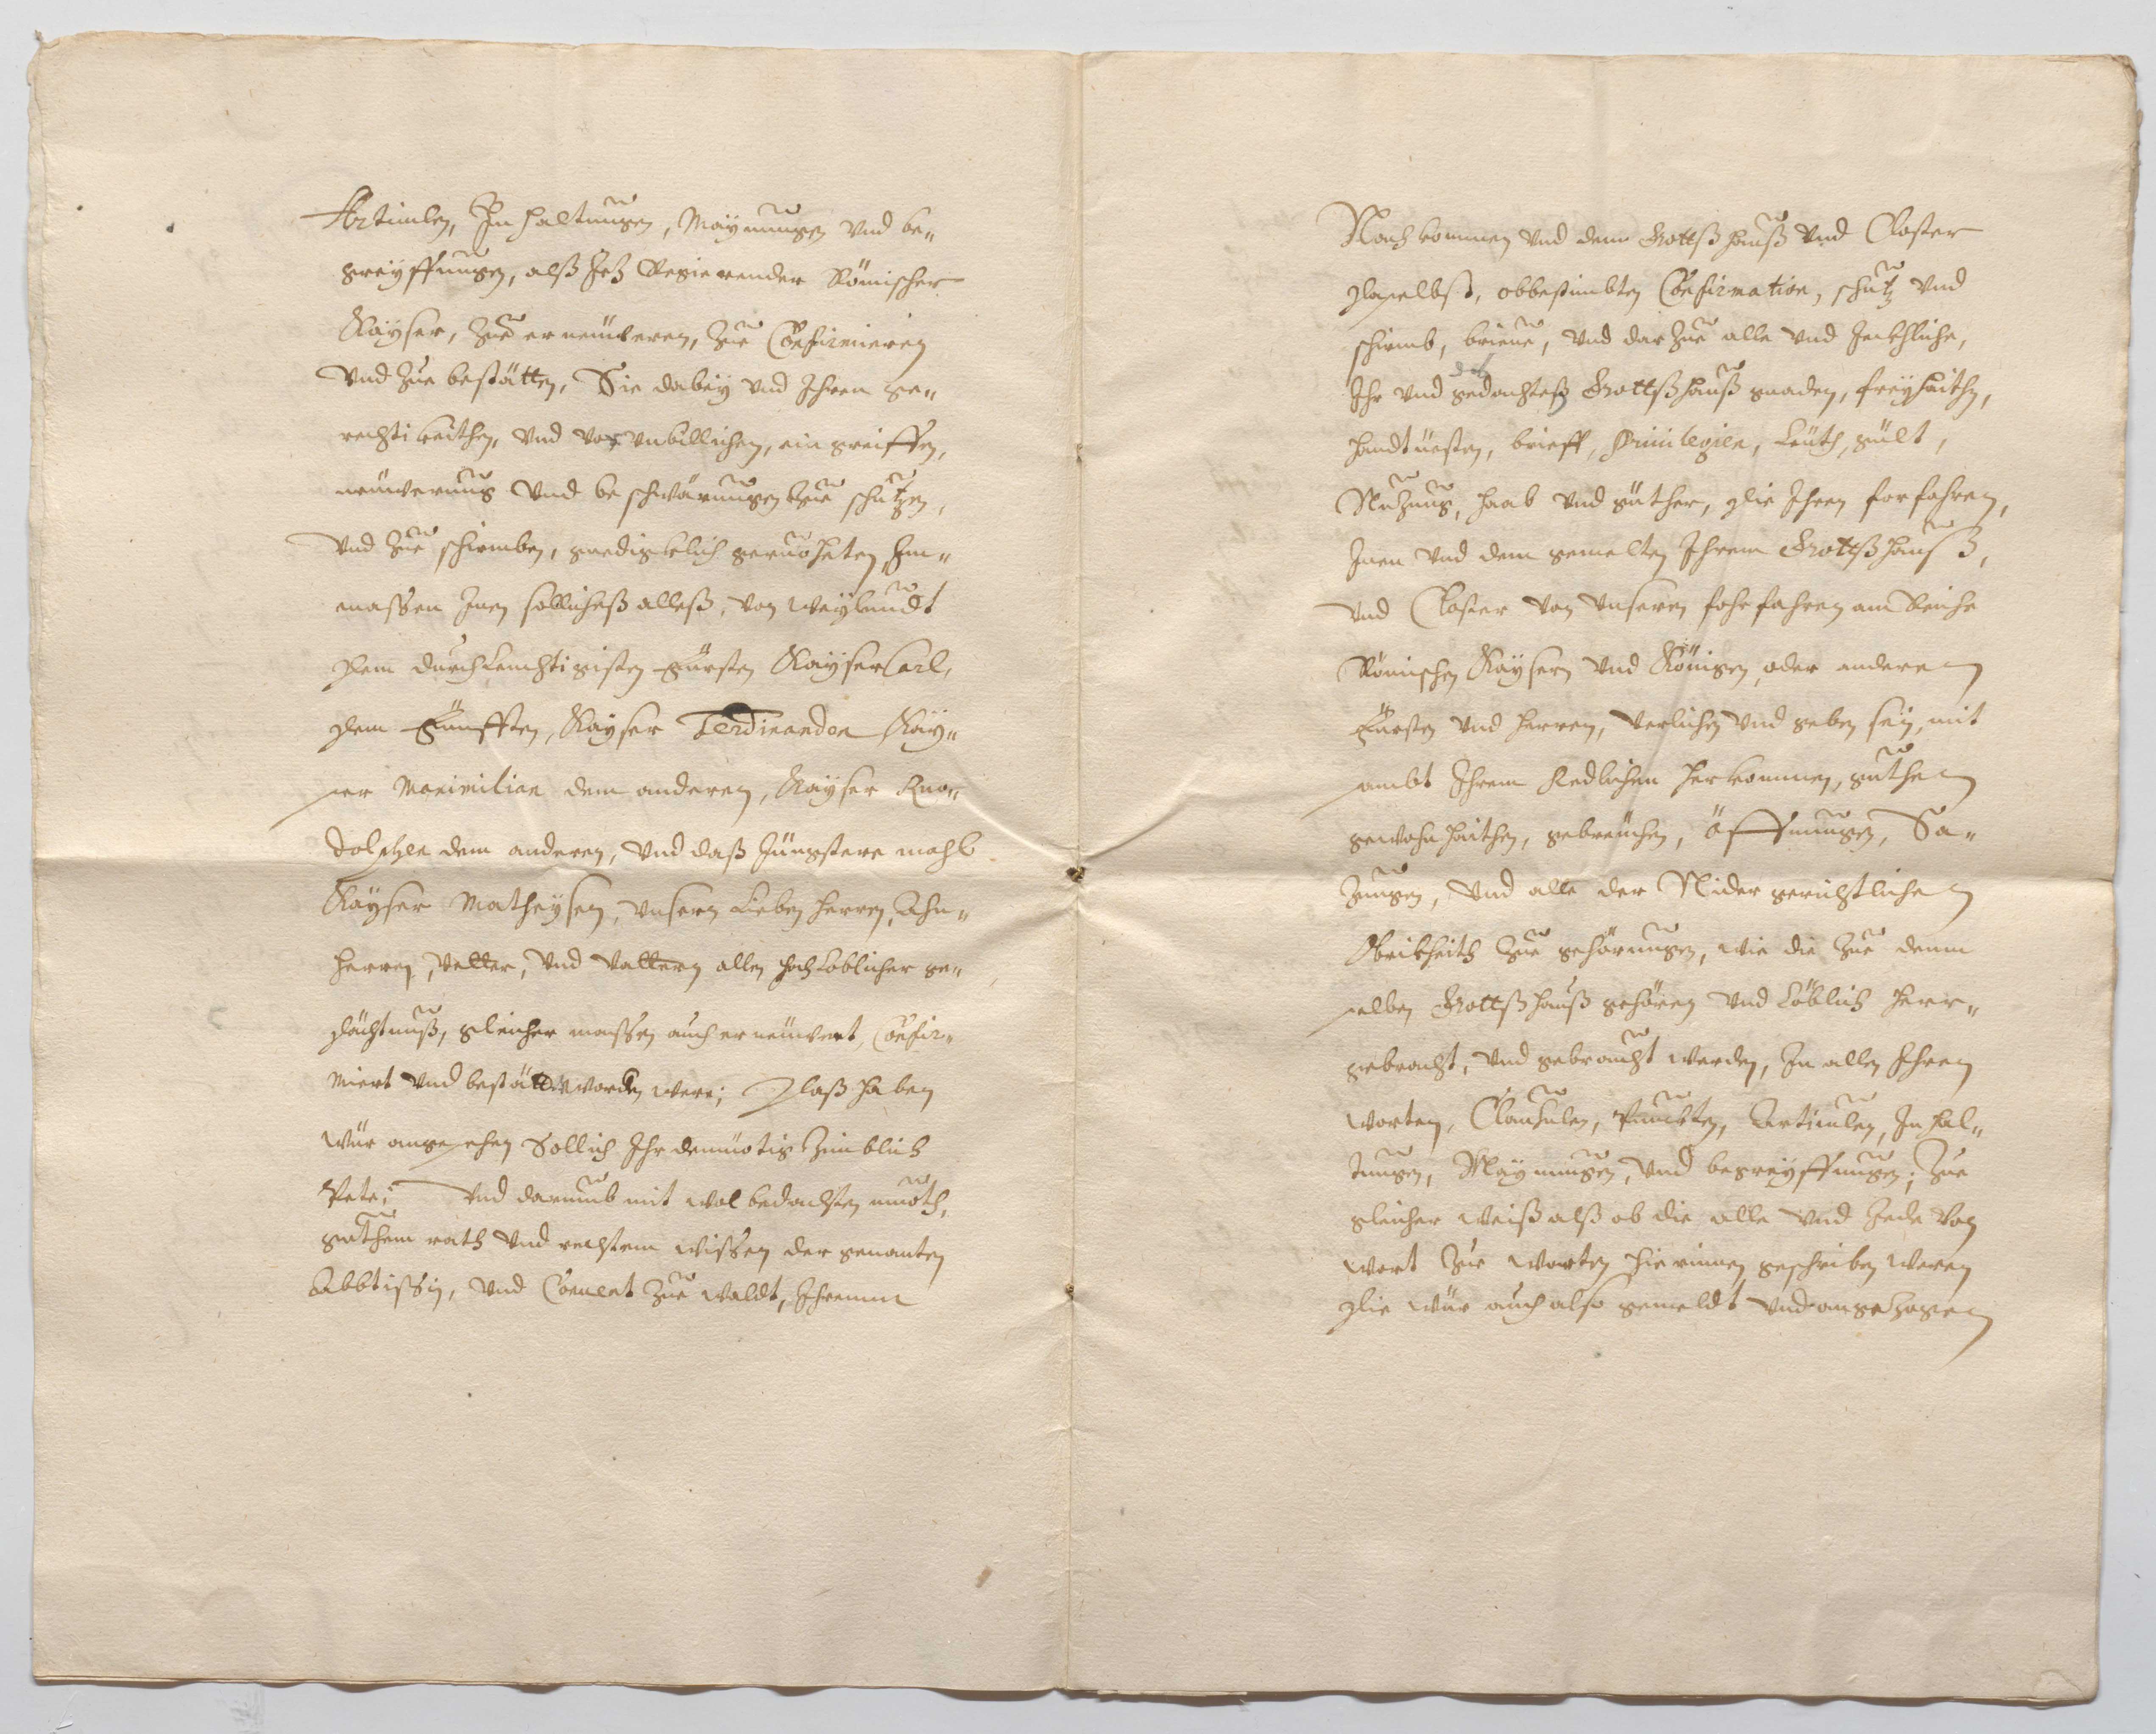 Articulen, Inhaltungen, Maynungen vnd be„
greyffungen, alß Jetz Regierender Römischer
Kayser, Zue erneüweren, Zue Confirmieren
Vnd Zue bestätten, Sie dabeÿ vnd Ihren ge„
rechtikeithen, vnd vor vnbillichen, eingreiffen,
neüwerung vnd beschwärungen Zue schutzen,
vnd Zue schirmben, gnedigklich geruoheten, Jm„
massen Jnen sollicheß alleß, von weÿlundt
dem durchleuchtigisten Fürsten Kayser Carl,
dem Fünfften, Kayser Ferdinanden Kaÿ„
ser Maximilian dem anderen, Kayser Ruo„
dolphen dem anderen, vnd daß Jüngstere mahl
Kayser Matheÿsen, vnsern Lieben herren, Ahn„
herren, Vetter, vnd Vattern allen hochloblicher ge„
dächtnuß, gleicher massen auch erneüwert, Confir„
miert vnd bestätt worden were; daß haben
wür angesehen Sollich Ihr demüotig Zimblich
Pete; vnd darumb mit wolbedachten muoth,
guthem rath vnd rechtem wissen der genanten
Abbtissin, vnd Conuent Zue waldt, Ihremm
Nachkommen vnd dem Gottßhauß vnd Closter
daselbst, obbestimbten Confirmation, schutz vnd
schirmb, brieue, vnd darZue alle vnd Jeckhliche,
Ihr vnd deß gedachteß Gottßhauß gnaden, freÿhaithn,
handtuesten, brieff, Priuilegien, Leüth, gült,
Nuzung, haab vnd güther, die Ihren forfahren,
Jnen vnd dem gemelten Ihrem Gottßhauß,
vnd Closter von vnseren fohrfahren am Reiche
Römischen Kaysern vnd Königen, oder anderen
Fürsten vnd herren, verlichen vnd geben sein, mit
sambt Ihrem Redlichen herkommen, guthen
gewohnhaithen, gebreüchen, öffnungen, Sa„
zungen, vnd alle der Nidergerichtlichen
Obrikheith Zue gehörungen, wie die Zue demm
selben Gottßhauß gehören vnd Löblich herr„
gebracht, vnd gebraucht werden, In allen Ihren
worten, Clausulen, Puncten, Articulen, Inhal„
tungen, Maynungen, vnd begreyffungen; Zue
gleicher weiß alß ob die alle vnd Jede von
wort Zue worten hierinnen geschriben weren
die wür auch also gemeldt vnd angeZogen